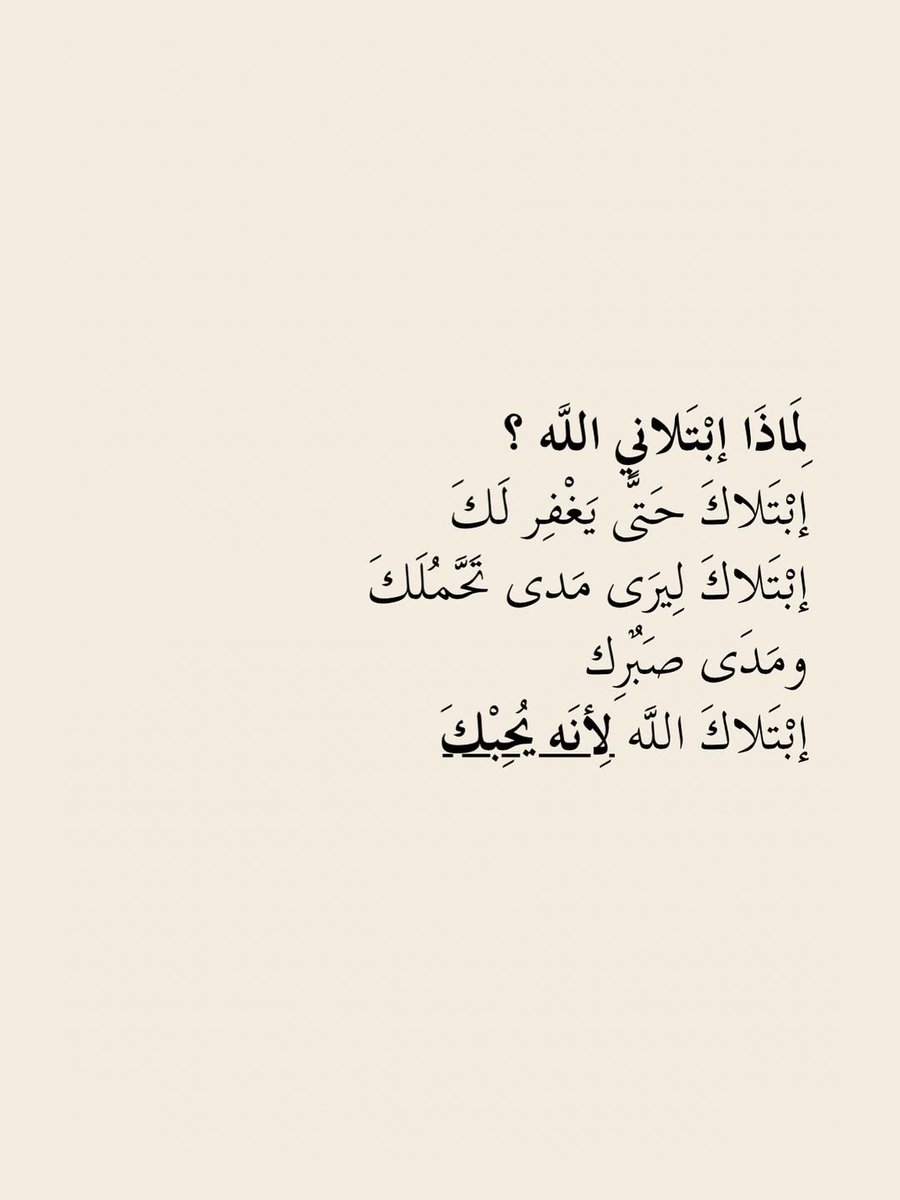 لِمَاذَا إبْتَلاني اللَّه ؟
إبْتَلاكَ حَتَّى يَغْفِر لَكَ
إبْتَلاكَ لِيرَى مَدى تَحَّمُلَكَ
ومَدَى صَبٌرِك
إبْتَلاكَ اللَّه لِأنَه يُحِبْكَ